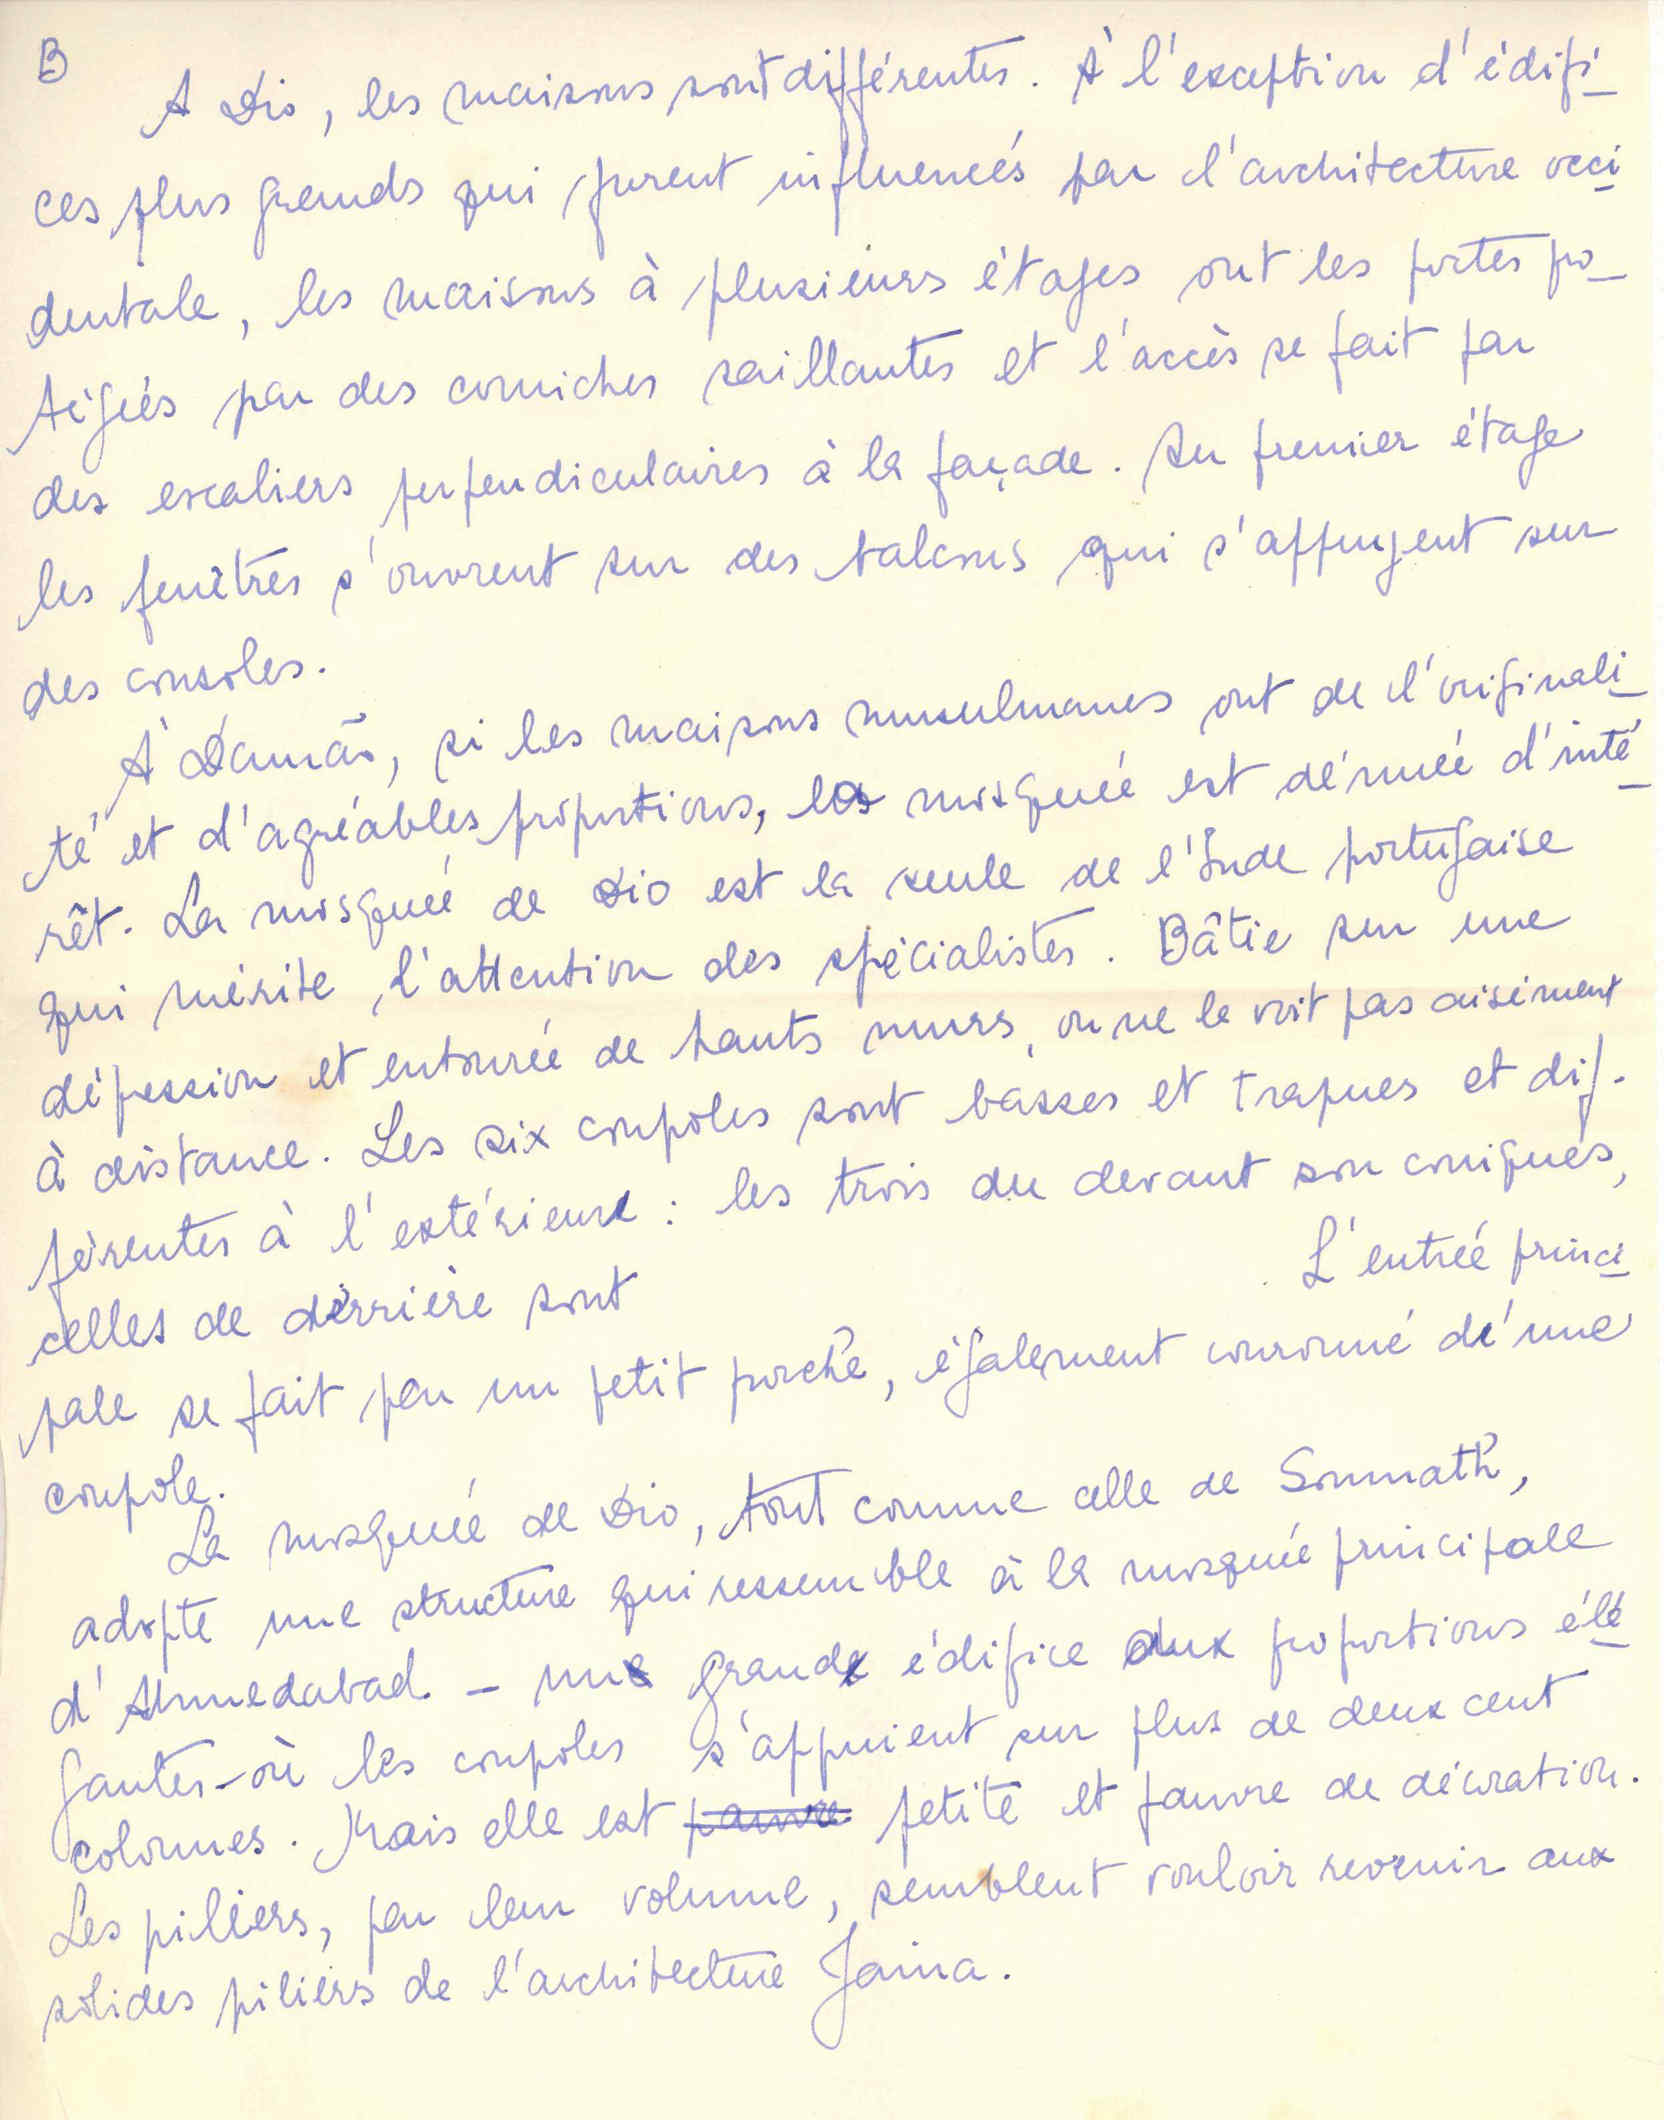 B
A Dio, les maisons sont différentes. À l'exception d'édifi-
ces plus grands qui furent influencés par l'architecture occi
dentale, les maisons à plusieurs étages ont les portes po-
tégées par des corniches saillantes et l'accès se fait par
des escaliers perpendiculaires à la façade. Au premier étage
les fenêtres s'ouvrent sur des balcons qui s'appuyent sur
des consoles.
À Damão, si les maisons musulmanes ont de l'originali
té et d'agréables proportions, la mosquée est dénuée d'inté
rêt. La mosquée de Dio est la seule de l'Inde portugaise
qui mérite l'attention des spécialistes. Bâtie sur une
dépression et entourée de hauts murs, on ne la voit pas aisément
à distance. Les six coupoles sont basses et trapues et dif-
férentes à l'extérieur : les trois du devant son coniques,
celles de derrière sont L'entrée princi
pale se fait par un petit porche, également couronné d'une
coupole.
La mosquée de Dio, tout comme celle de Somnath,
adopte une structure qui ressemble à la mosquée principale
d'Ahmedabad - un grand édifice aux proportions élé
gantes - où les coupoles s'appuient sur plus de deux cent
colonnes. Mais elle est pauvre petite et pauvre de décoration.
Les piliers, par leur volume, semblent vouloir revenir aux
solides piliers de l'architecture Jaina.